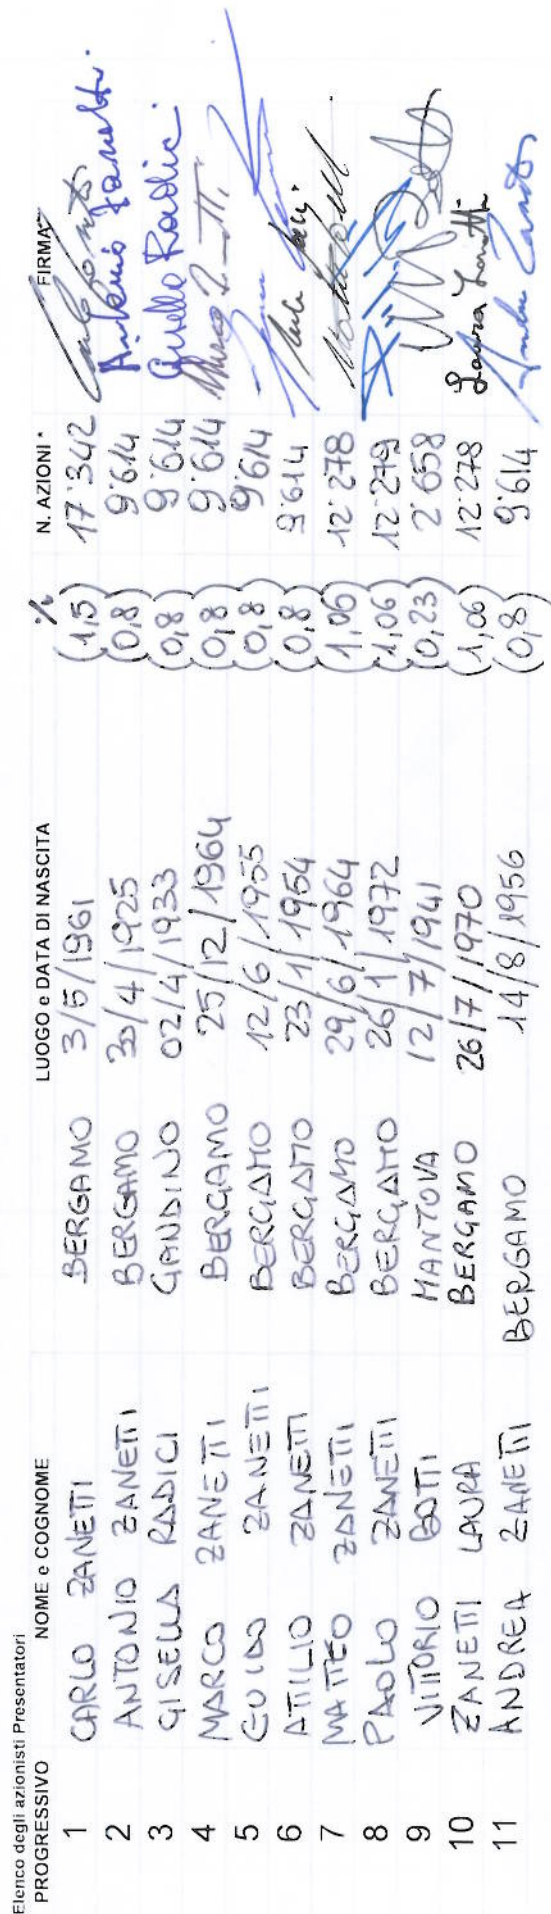 Elenco degli azionisti Presentatori
PROGRESSIVO NOME e COGNOME LUOGO e DATA DI NASCITA % N. AZIONI * FIRMA
1 CARLO ZANETTI BERGAMO 3/5/1961 (1,5) 17'342
2 ANTONIO ZANETTI BERGAMO 30/4/1925 (0,8) 9'614 Antonio Zanetti
3 GISELLA RADICI GANDINO 02/4/1933 (0,8) 9'614 Gisella Radici
4 MARCO ZANETTI BERGAMO 25/12/1964 (0,8) 9'614
5 GUIDO ZANETTI BERGAMO 12/6/1955 (0,8) 9'614
6 ATTILIO ZANETTI BERGAMO 23/1/1954 (0,8) 9'614
7 MATTEO ZANETTI BERGAMO 29/6/1964 (1,06) 12'278
8 PAOLO ZANETTI BERGAMO 26/1/1972 (1,06) 12'279
9 VITTORIO BOTTI MANTOVA 12/7/1941 (0,23) 2'658
10 ZANETTI LAURA BERGAMO 26/7/1970 (1,06) 12'278 Laura Zanetti
11 ANDREA ZANETTI BERGAMO 14/8/1956 (0,8) 9'614